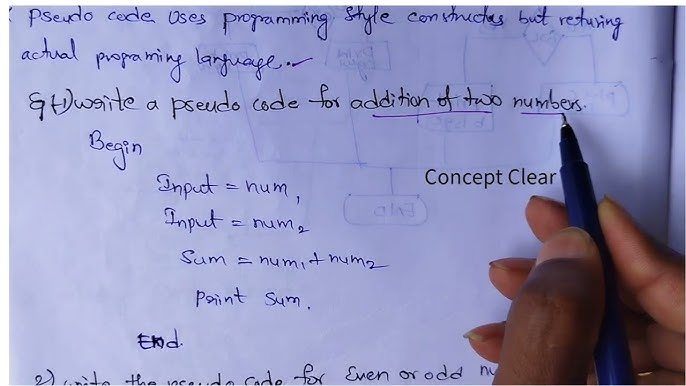 Pseudo code uses programming style constructus but returing
actual programing language.
Q(1) write a pseudo code for addition of two numbers.
Begin
Input = num₁
Input = num₂
Concept Clear
Sum = num₁ + num₂
Print Sum.
End.
2) write the pseudo code for Even or odd